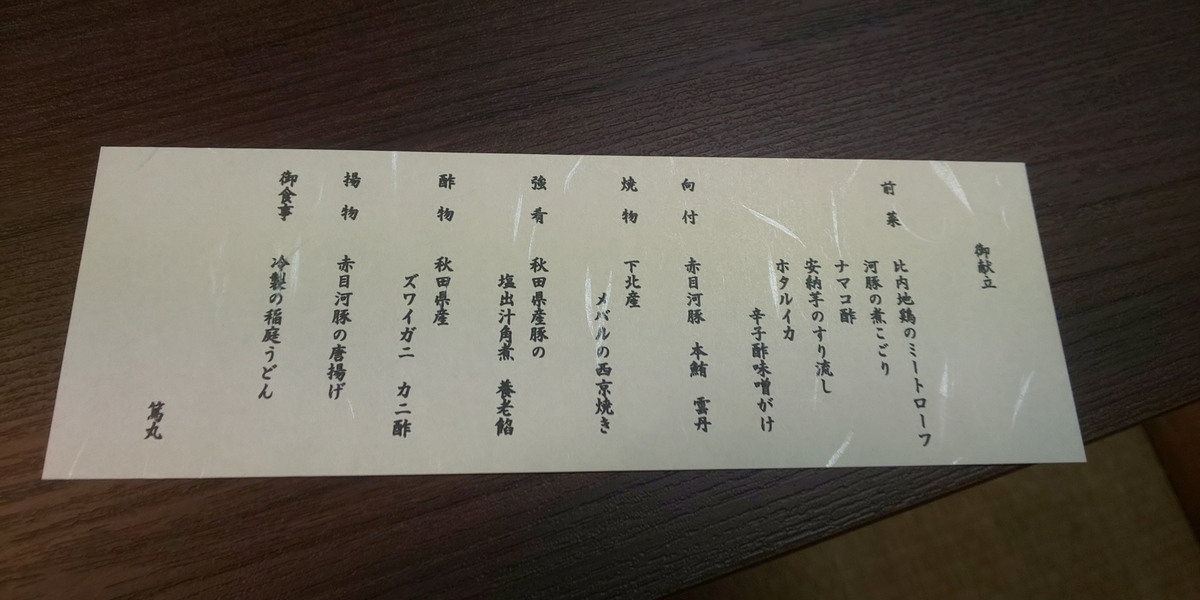 御献立
前菜
比内地鶏のミートローフ
河豚の煮こごり
ナマコ酢
安納芋のすり流し
ホタルイカ
辛子酢味噌がけ
向付　赤目河豚　本鮪　雲丹
焼物　下北産
メバルの西京焼き
強肴　秋田県産豚の
塩出汁角煮　養老餡
酢物　秋田県産
ズワイガニ　カニ酢
揚物　赤目河豚の唐揚げ
御食事　冷製の稲庭うどん
篤丸